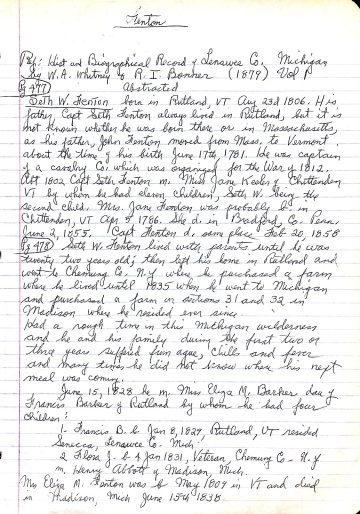 Fenton
Ref: Hist and Biographical Record of Lenawee Co., Michigan
by W. A. Whitney & R. I. Bonner (1879) Vol I
Pg 477 Abstracted
Seth W. Fenton born in Rutland, VT Aug 23d 1806. His
father, Capt Seth Fenton always lived in Rutland, but it is
not known whether he was born there or in Massachusetts,
as his father, John Fenton moved from Mass. to Vermont
about the time of his birth June 17th, 1781. He was captain
of a cavalry Co. which was organized for the War of 1812.
Abt 1802, Capt Seth Fenton m. Miss Jane Keeler of Chittenden
VT by whom he had eleven children, Seth W. being the
second child. Mrs. Jane Fenton was probably b. in
Chittenden, VT Apr 5, 1786. She d. in Bradford, Co. Penn.
June 2, 1855. Capt Fenton d. same place Feb 20, 1858
Pg 478 Seth W. Fenton lived with parents until he was
twenty two years old; then left his home in Rutland and
went to Chemung Co. N.Y where he purchased a farm
where he lived until 1835 when he went to Michigan
and purchased a farm on sections 31 and 32 in
Madison where he resided ever since.
Had a rough time in this Michigan wilderness
and he and his family during the first two or
three years suffered from ague, chills and fever
and many times he did not know where his next
meal was coming.
June 15, 1828 he m. Miss Eliza M. Barker dau of
Francis Barker of Rutland by whom he had four
children:
1- Francis B. b Jan 8, 1829, Rutland, VT resided
Senecca, Lenawee Co. Mich.
2 Flora J. b 4 Jan 1831, Veteran, Chemung Co - N.Y
m. Henry Abbott of Madison, Mich.
Mrs Eliza M. Fenton was b May 1809 in VT and died
in Madison, Mich June 15th 1838.